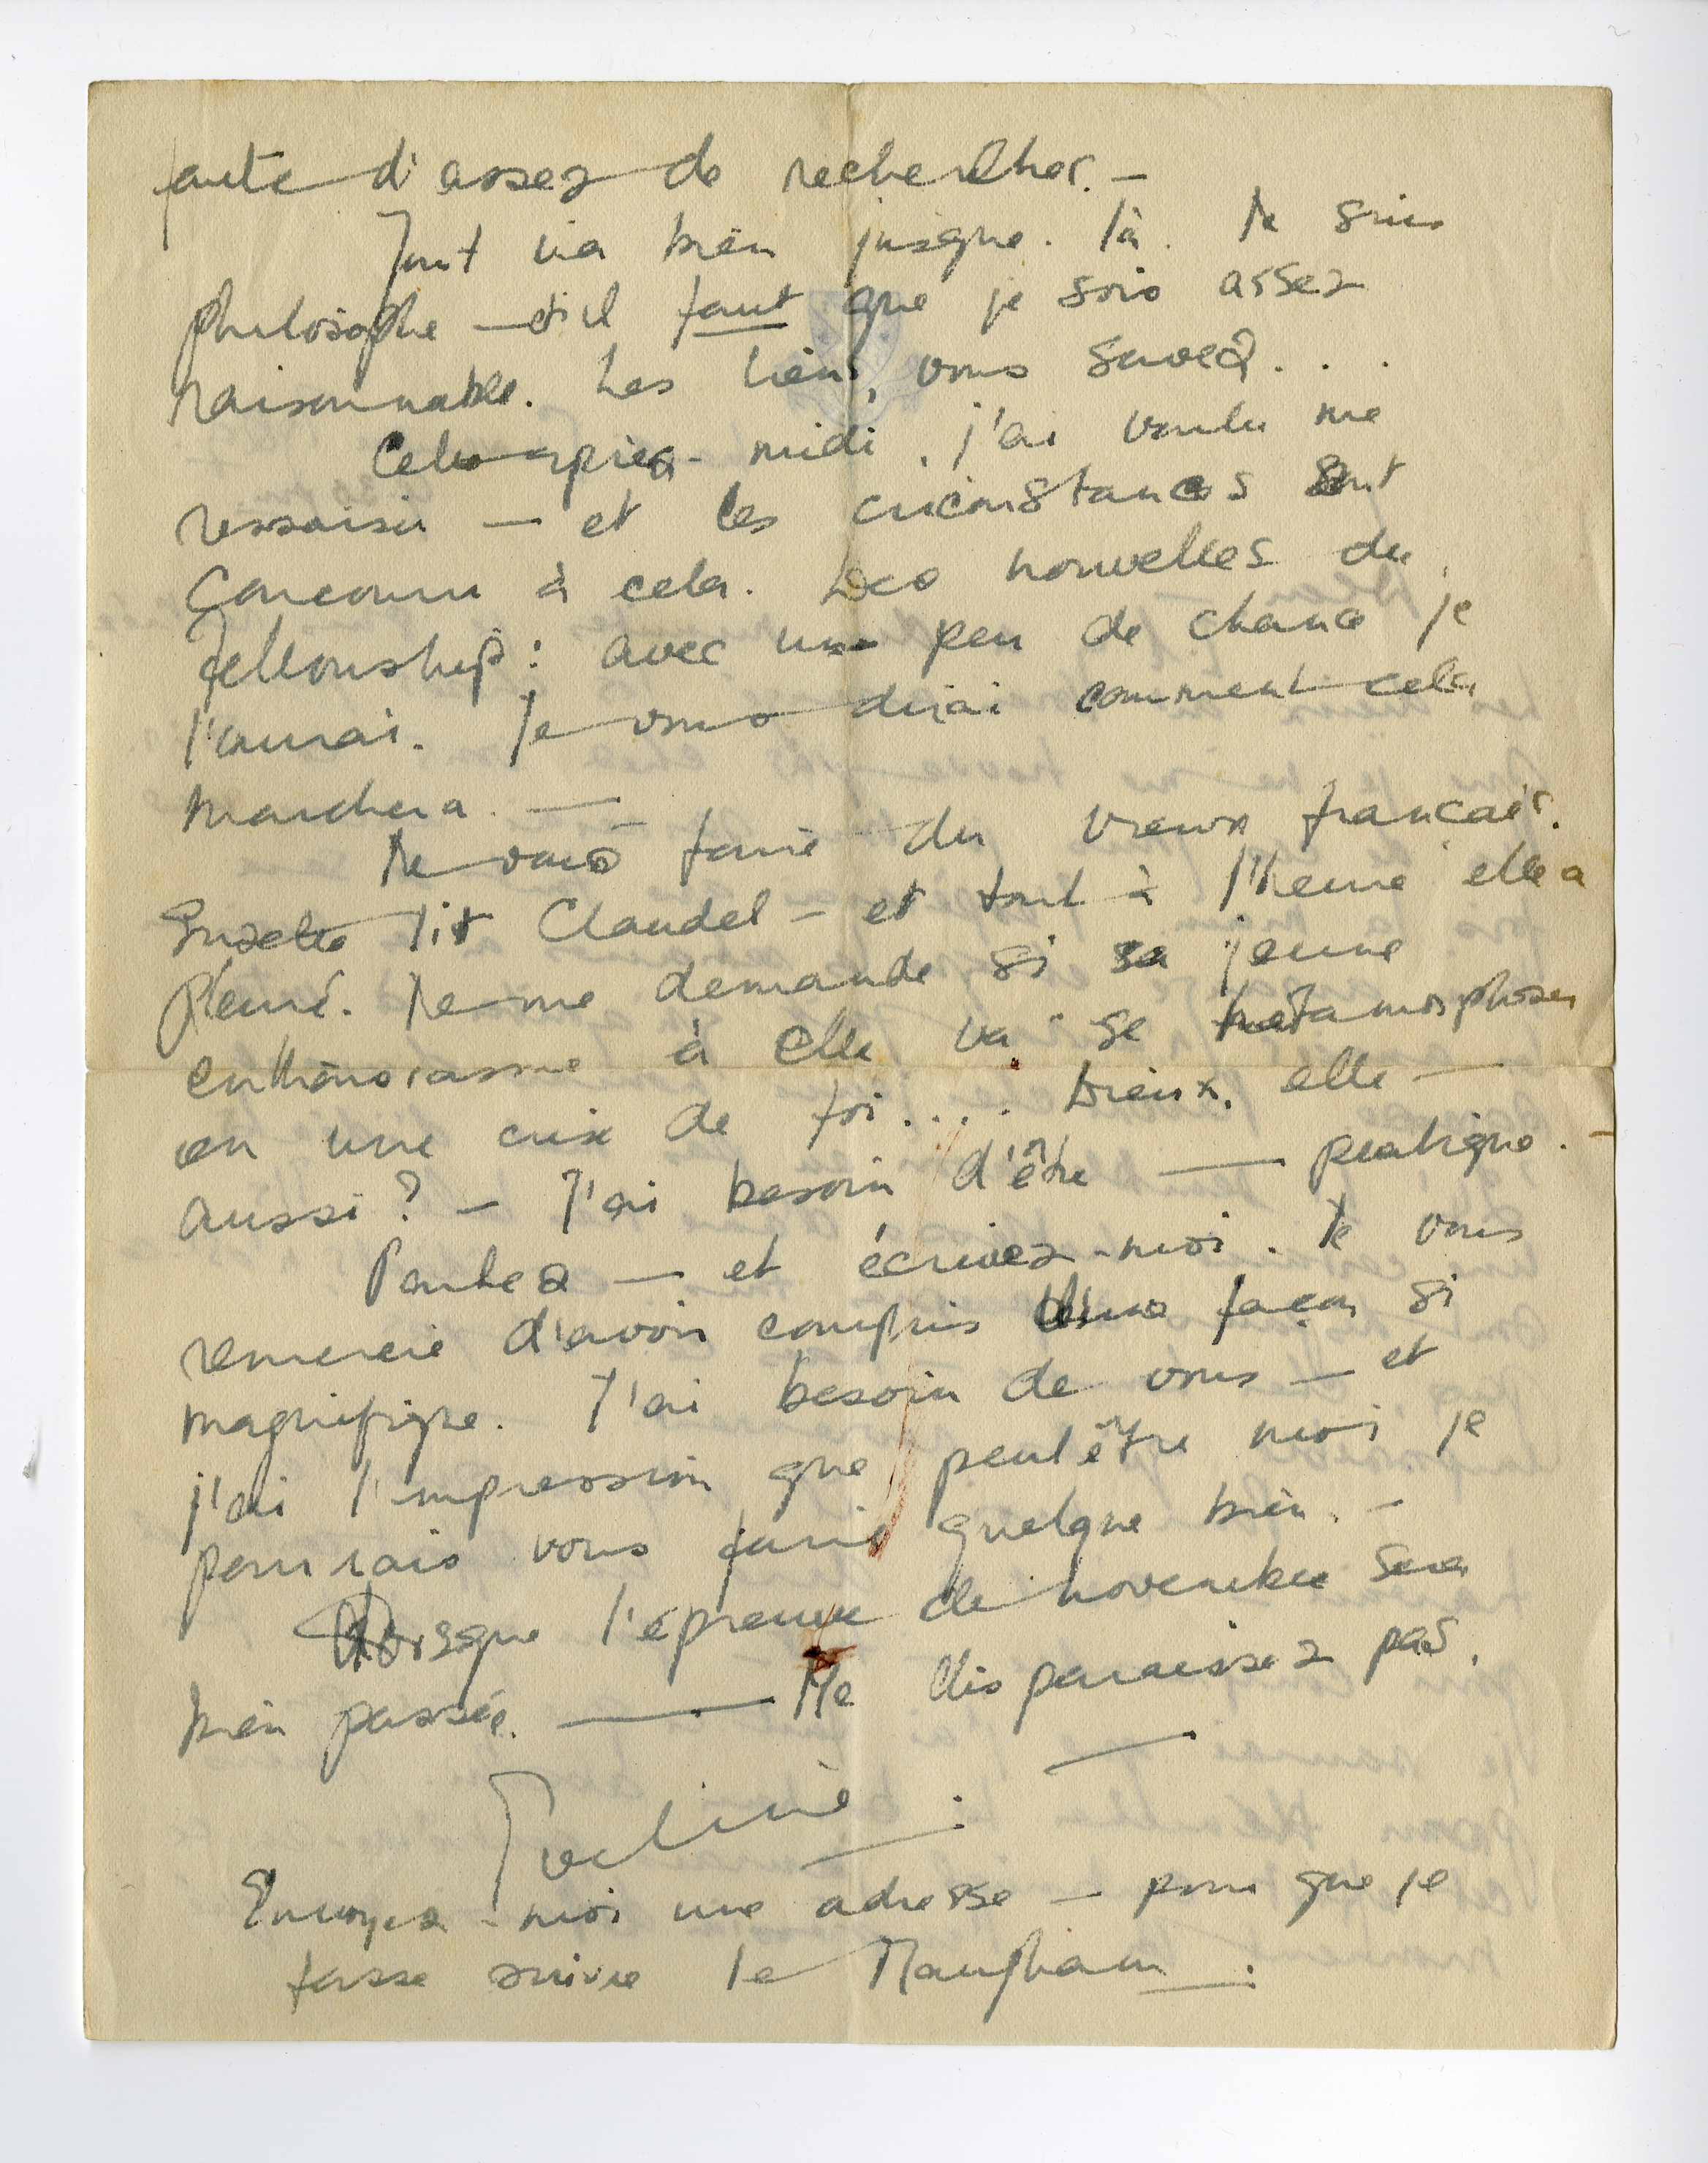 faute d'assez de rechercher. —
Tout va bien jusque. là. Je suis
philosophe — et il faut que je sois assez
raisonnable. Les liens, vous savez. . .
Cette après-midi, j'ai voulu me
ressaisir — et les circonstances ont
concouru à cela. Des nouvelles du
Fellowship : avec un peu de chance je
l'aurai. Je vous dirai comment cela
marchera. —
Je vais faire du vieux français.
Suzette lit Claudel — et tout à l'heure elle a
pleuré. Je me demande si sa jeune
enthousiasme à elle va se métamorphoser
en une crise de foi . . . . Dieux, elle —
aussi ? — J'ai besoin d'être — pratique. —
Partez — et écrivez-moi. Je vous
remercie d'avoir compris d'une façon si
magnifique. J'ai besoin de vous — et
j'ai l'impression que peut être moi je
pourrais vous faire quelque bien. —
Lorsque l'épreuve de novembre sera
bien passée. — Ne disparaissez pas.
—
Eveline.
Envoyez-moi une adresse — pour que je
fasse suivre le Maugham.